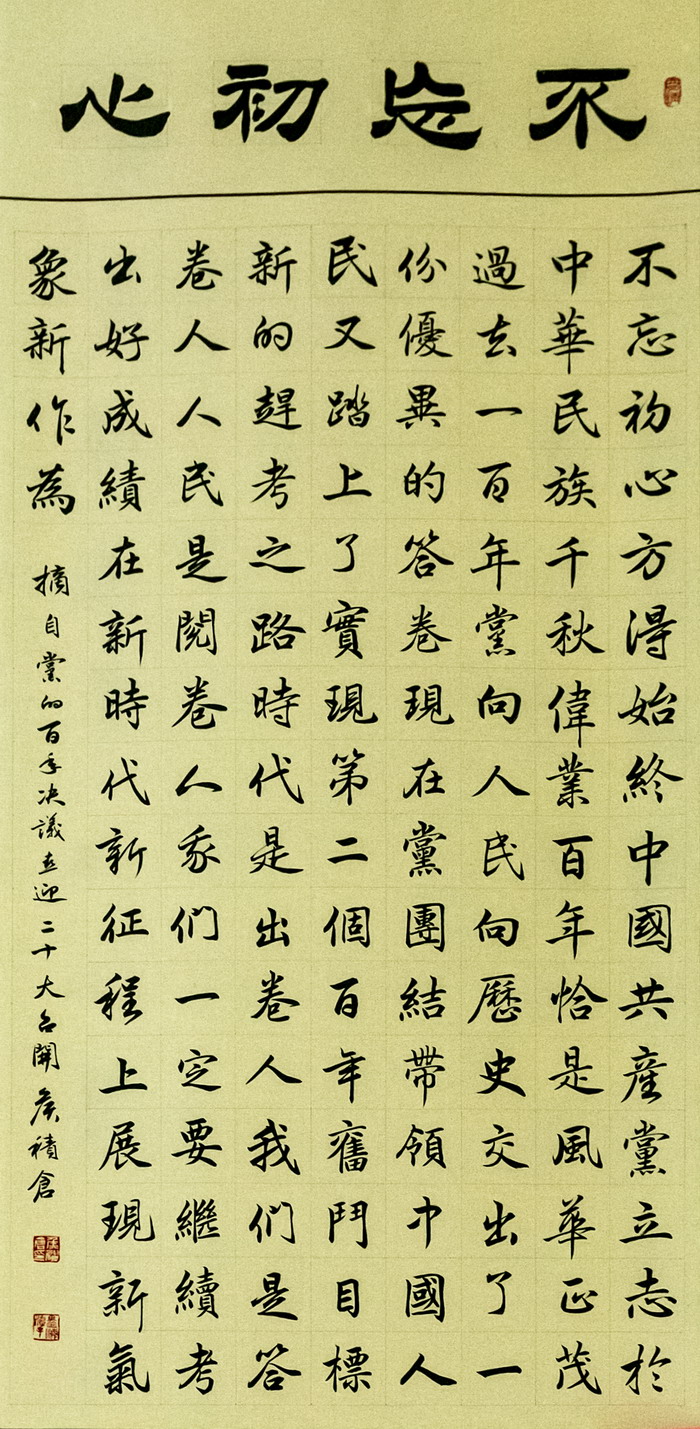 不忘初心
不忘初心方得始終中國共產黨立志於
中華民族千秋偉業百年恰是風華正茂
過去一百年黨向人民向歷史交出了一
份優異的答卷現在黨團結帶領中國人
民又踏上了實現第二個百年奮鬥目標
新的趕考之路時代是出卷人我們是答
卷人人民是閱卷人我們一定要繼續考
出好成績在新時代新征程上展現新氣
象新作為
摘自黨的百年决議喜迎二十大召開 侯積倉